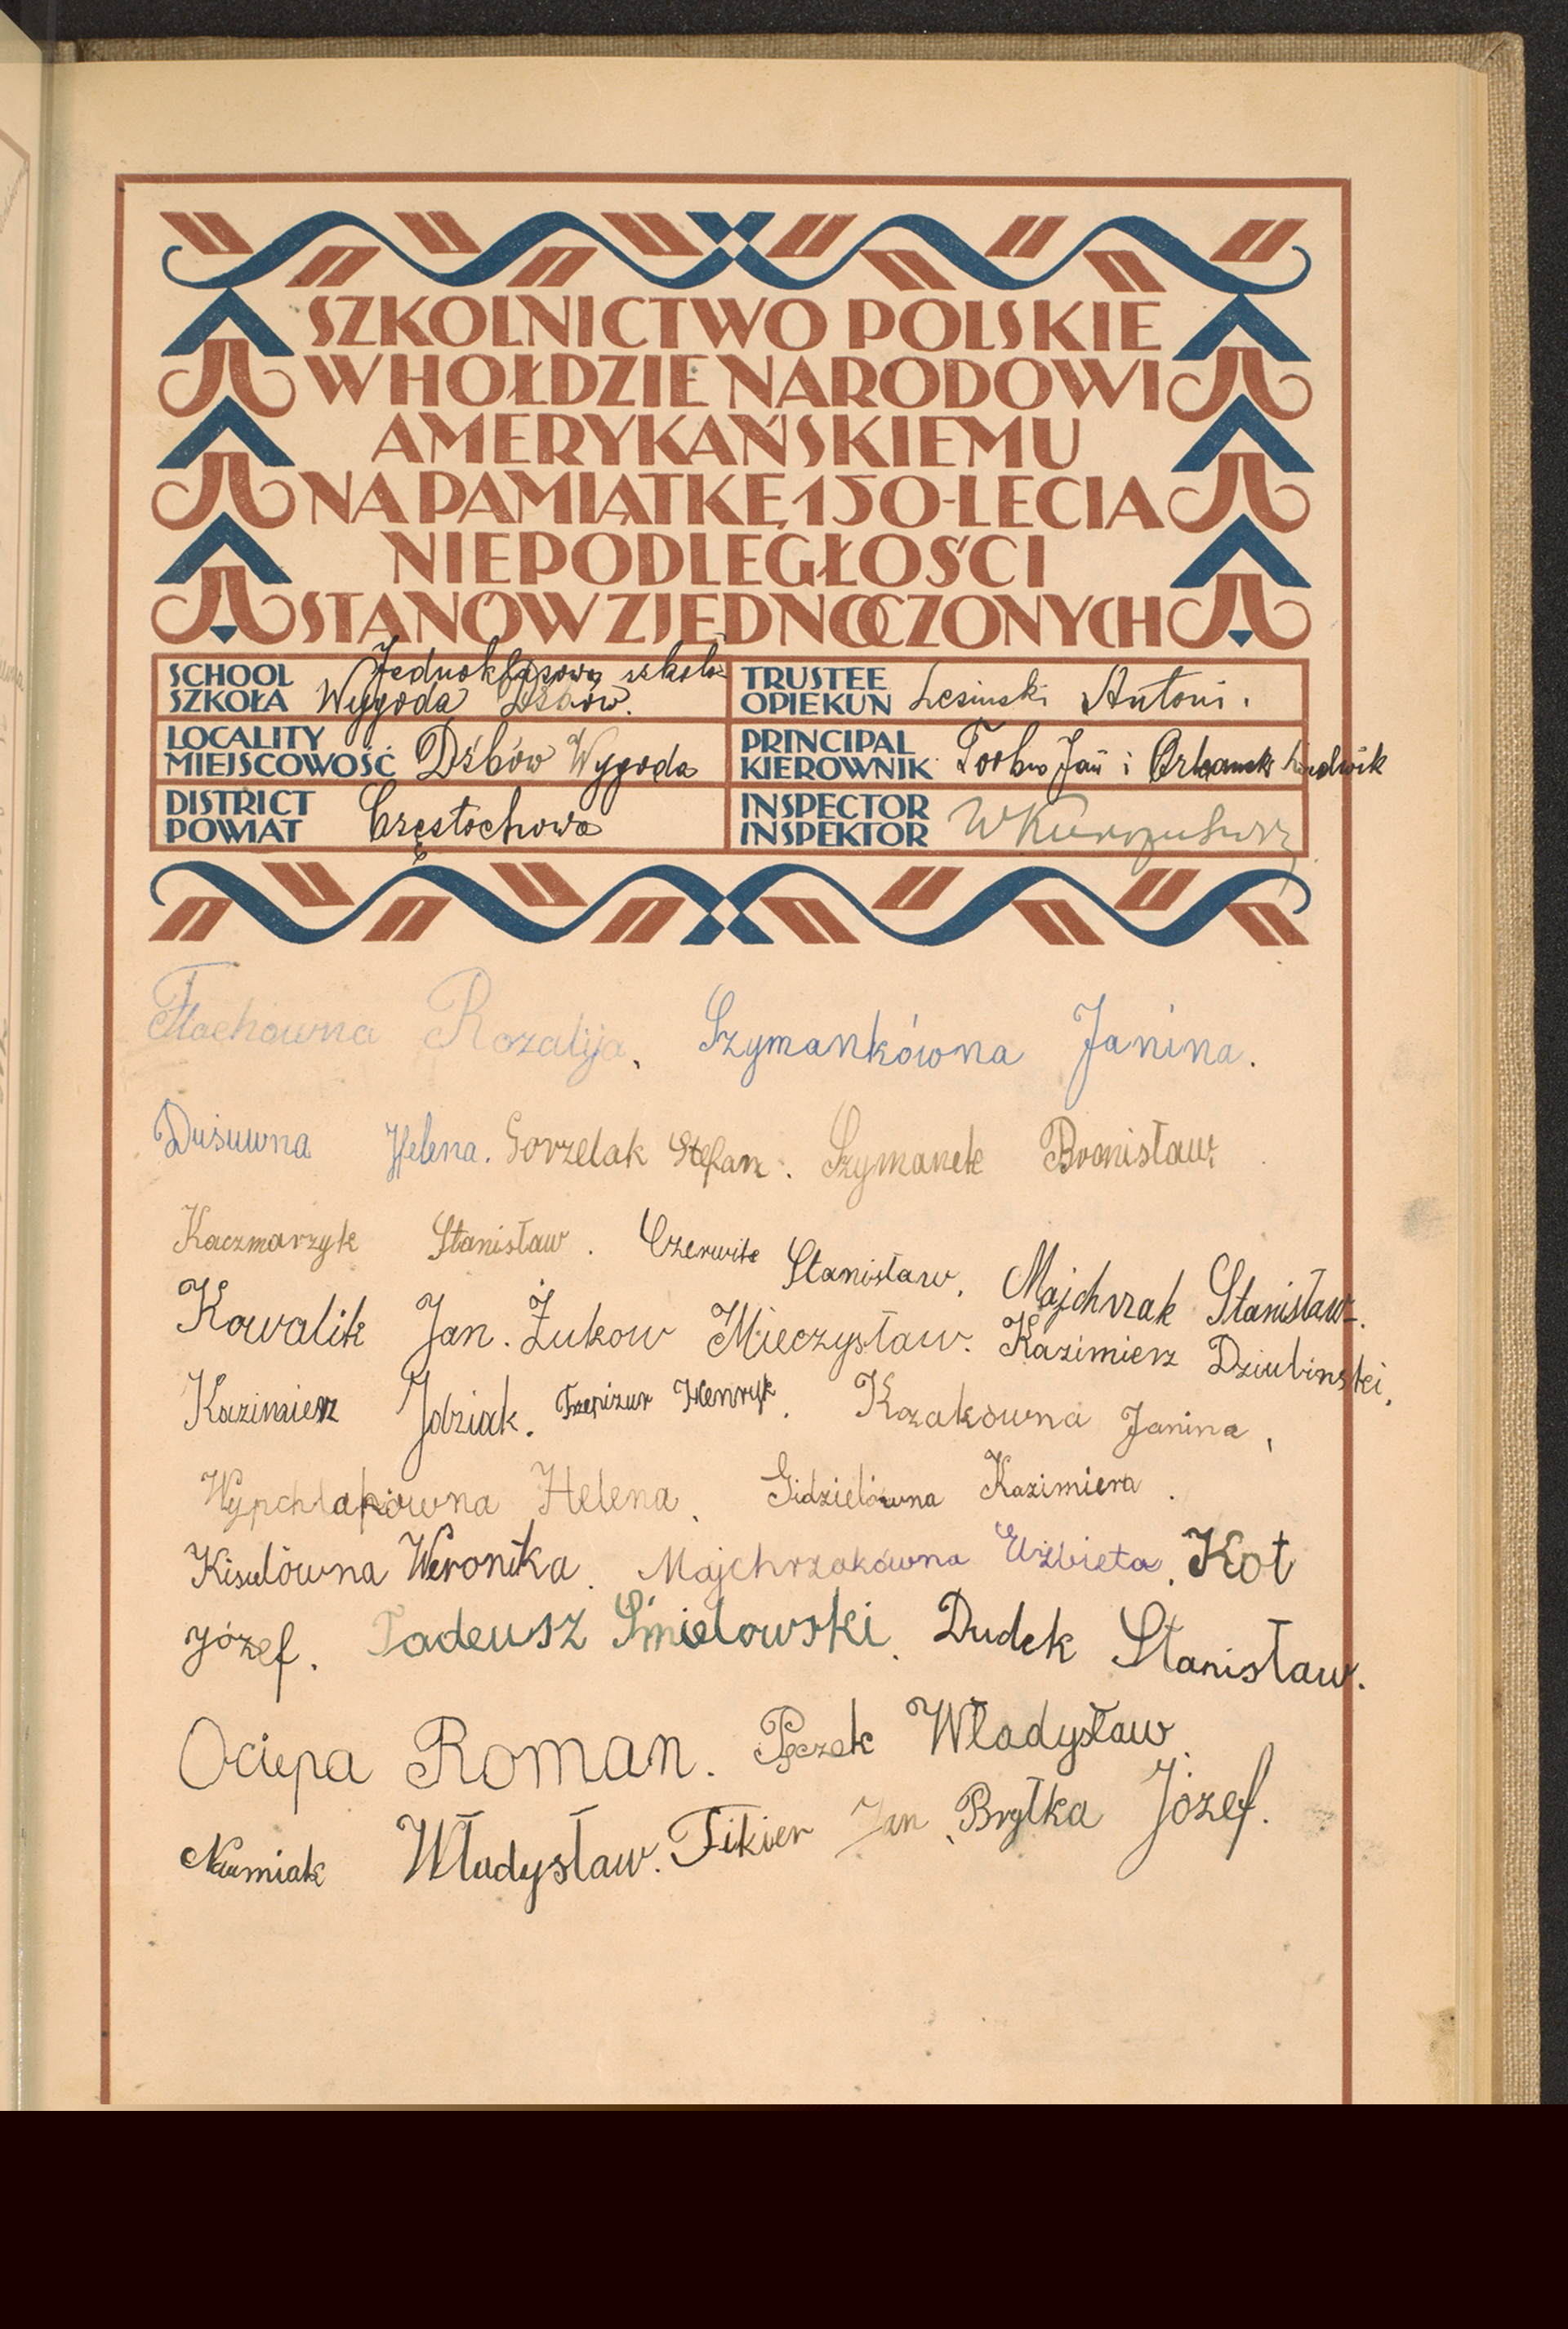 SZKOLNICTWO POLSKIE
W HOŁDZIE NARODOWI
AMERYKAŃSKIEMU
NA PAMIĄTKĘ 150-LECIA
NIEPODLEGŁOŚCI
STANÓW ZJEDNOCZONYCH
SCHOOL
SZKOŁA
Jednoklasowa szkoła
Wygoda Dźbów.
TRUSTEE
OPIEKUN
Lesinski Antoni.
LOCALITY
MIEJSCOWOŚĆ
Dźbów Wygoda
PRINCIPAL
KIEROWNIK
Jan i Ludwik
DISTRICT
POWIAT
Częstochowa
INSPECTOR
INSPEKTOR
Rozalija. Szymankówna Janina.
Dusuwna Helena. Gorzelak Stefan. Szymanek Bronisław.
Kaczmarzyk Stanisław. Czerwik Stanisław. Majchrzak Stanisław.
Kowalik Jan. Żukow Mieczysław. Kazimierz Dziubinski.
Kazimierz Jdziak. Trzepizur Henryk. Kozakówna Janina,
Wypchlakówna Helena, Gidzielówna Kazimiera.
Kisielówna Weronika. Majchrzakówna Elżbieta. Kot
Józef. Tadeusz Śmielowski. Dudek Stanisław.
Ociepa Roman. Pączek Władysław.
Władysław. Fikier Jan, Brytka Józef.